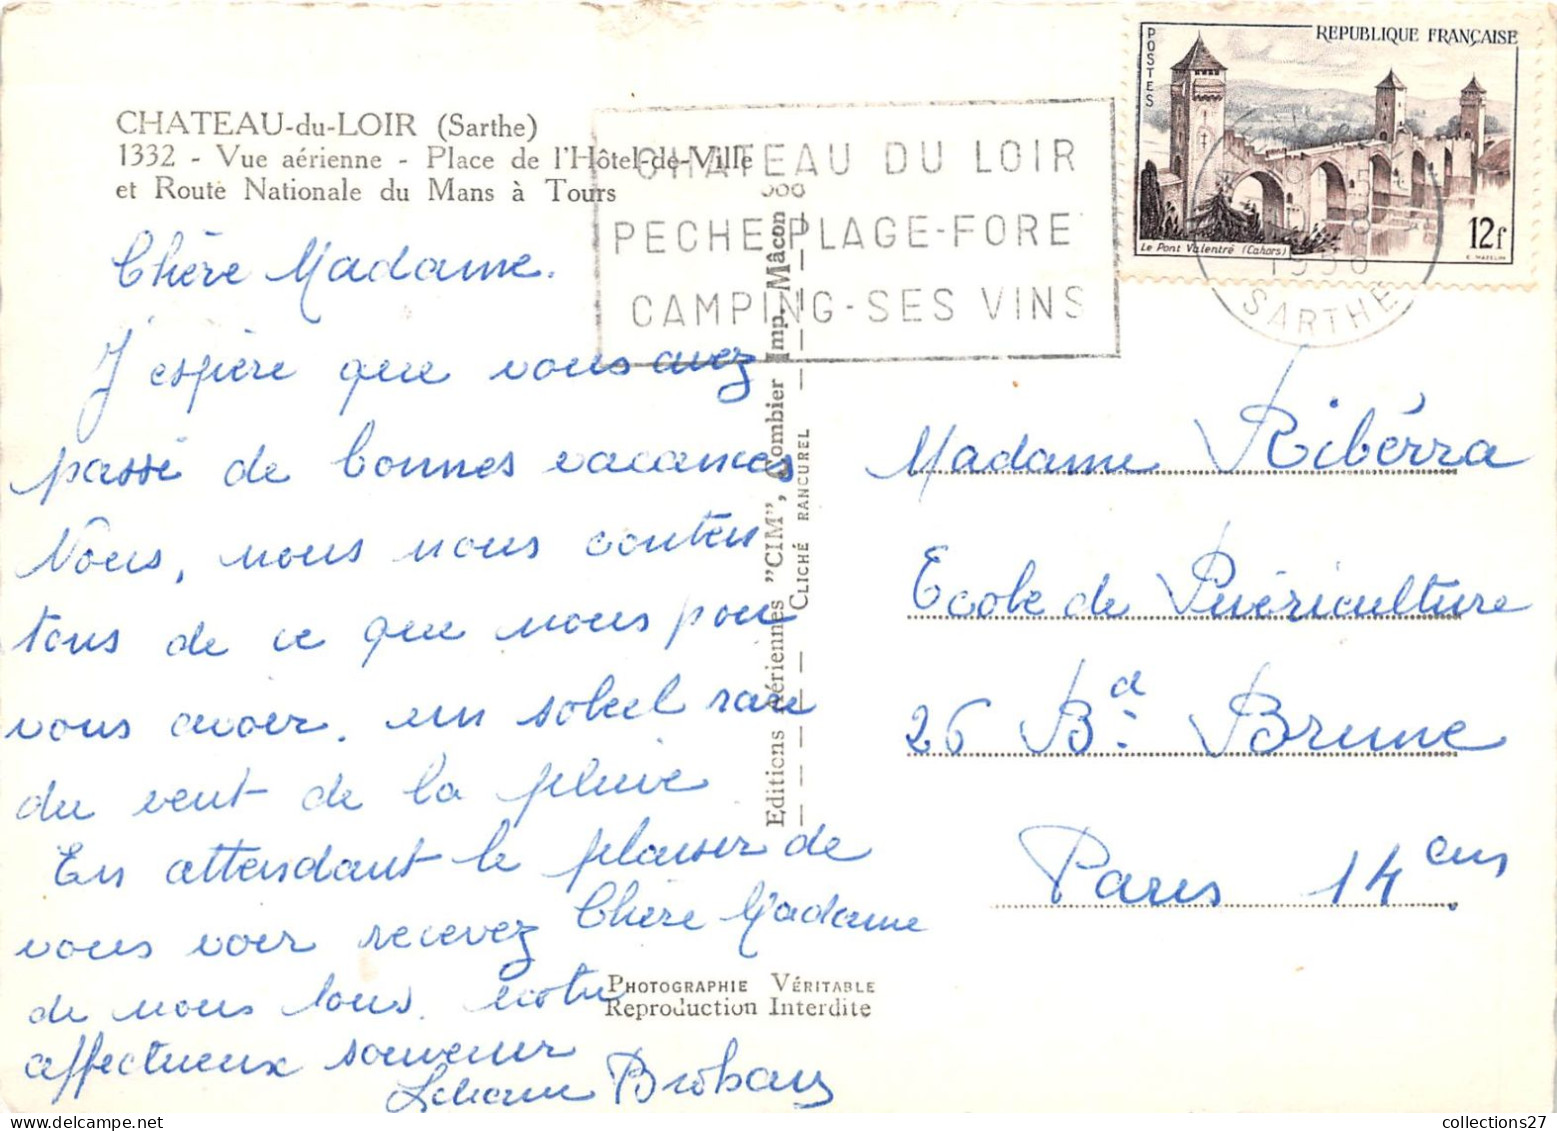 CHATEAU-du-LOIR (Sarthe)
1332 - Vue aérienne - Place de l'Hôtel-de-Ville
et Route Nationale du Mans à Tours
CHATEAU DU LOIR
PECHE-PLAGE-FORE
CAMPING-SES VINS
POSTES
REPUBLIQUE FRANÇAISE
Le Pont Valentré (Cahors)
12f
SARTHE
Chère Madame.
J'espère que vous avez
passé de bonnes vacances
Nous, nous nous conten
tons de ce que nous pou
vons avoir. un soleil rare
du vent de la pluie
En attendant le plaisir de
vous voir recevez Chère Madame
de nous tous. notre
affectueux souvenir
Editions Aériennes "CIM", Combier Imp. Mâcon
CLICHÉ RANCUREL
PHOTOGRAPHIE VÉRITABLE
Reproduction Interdite
Madame Ribérra
Ecole de Puériculture
26 Bd. Brune
Paris 14 em
collections27